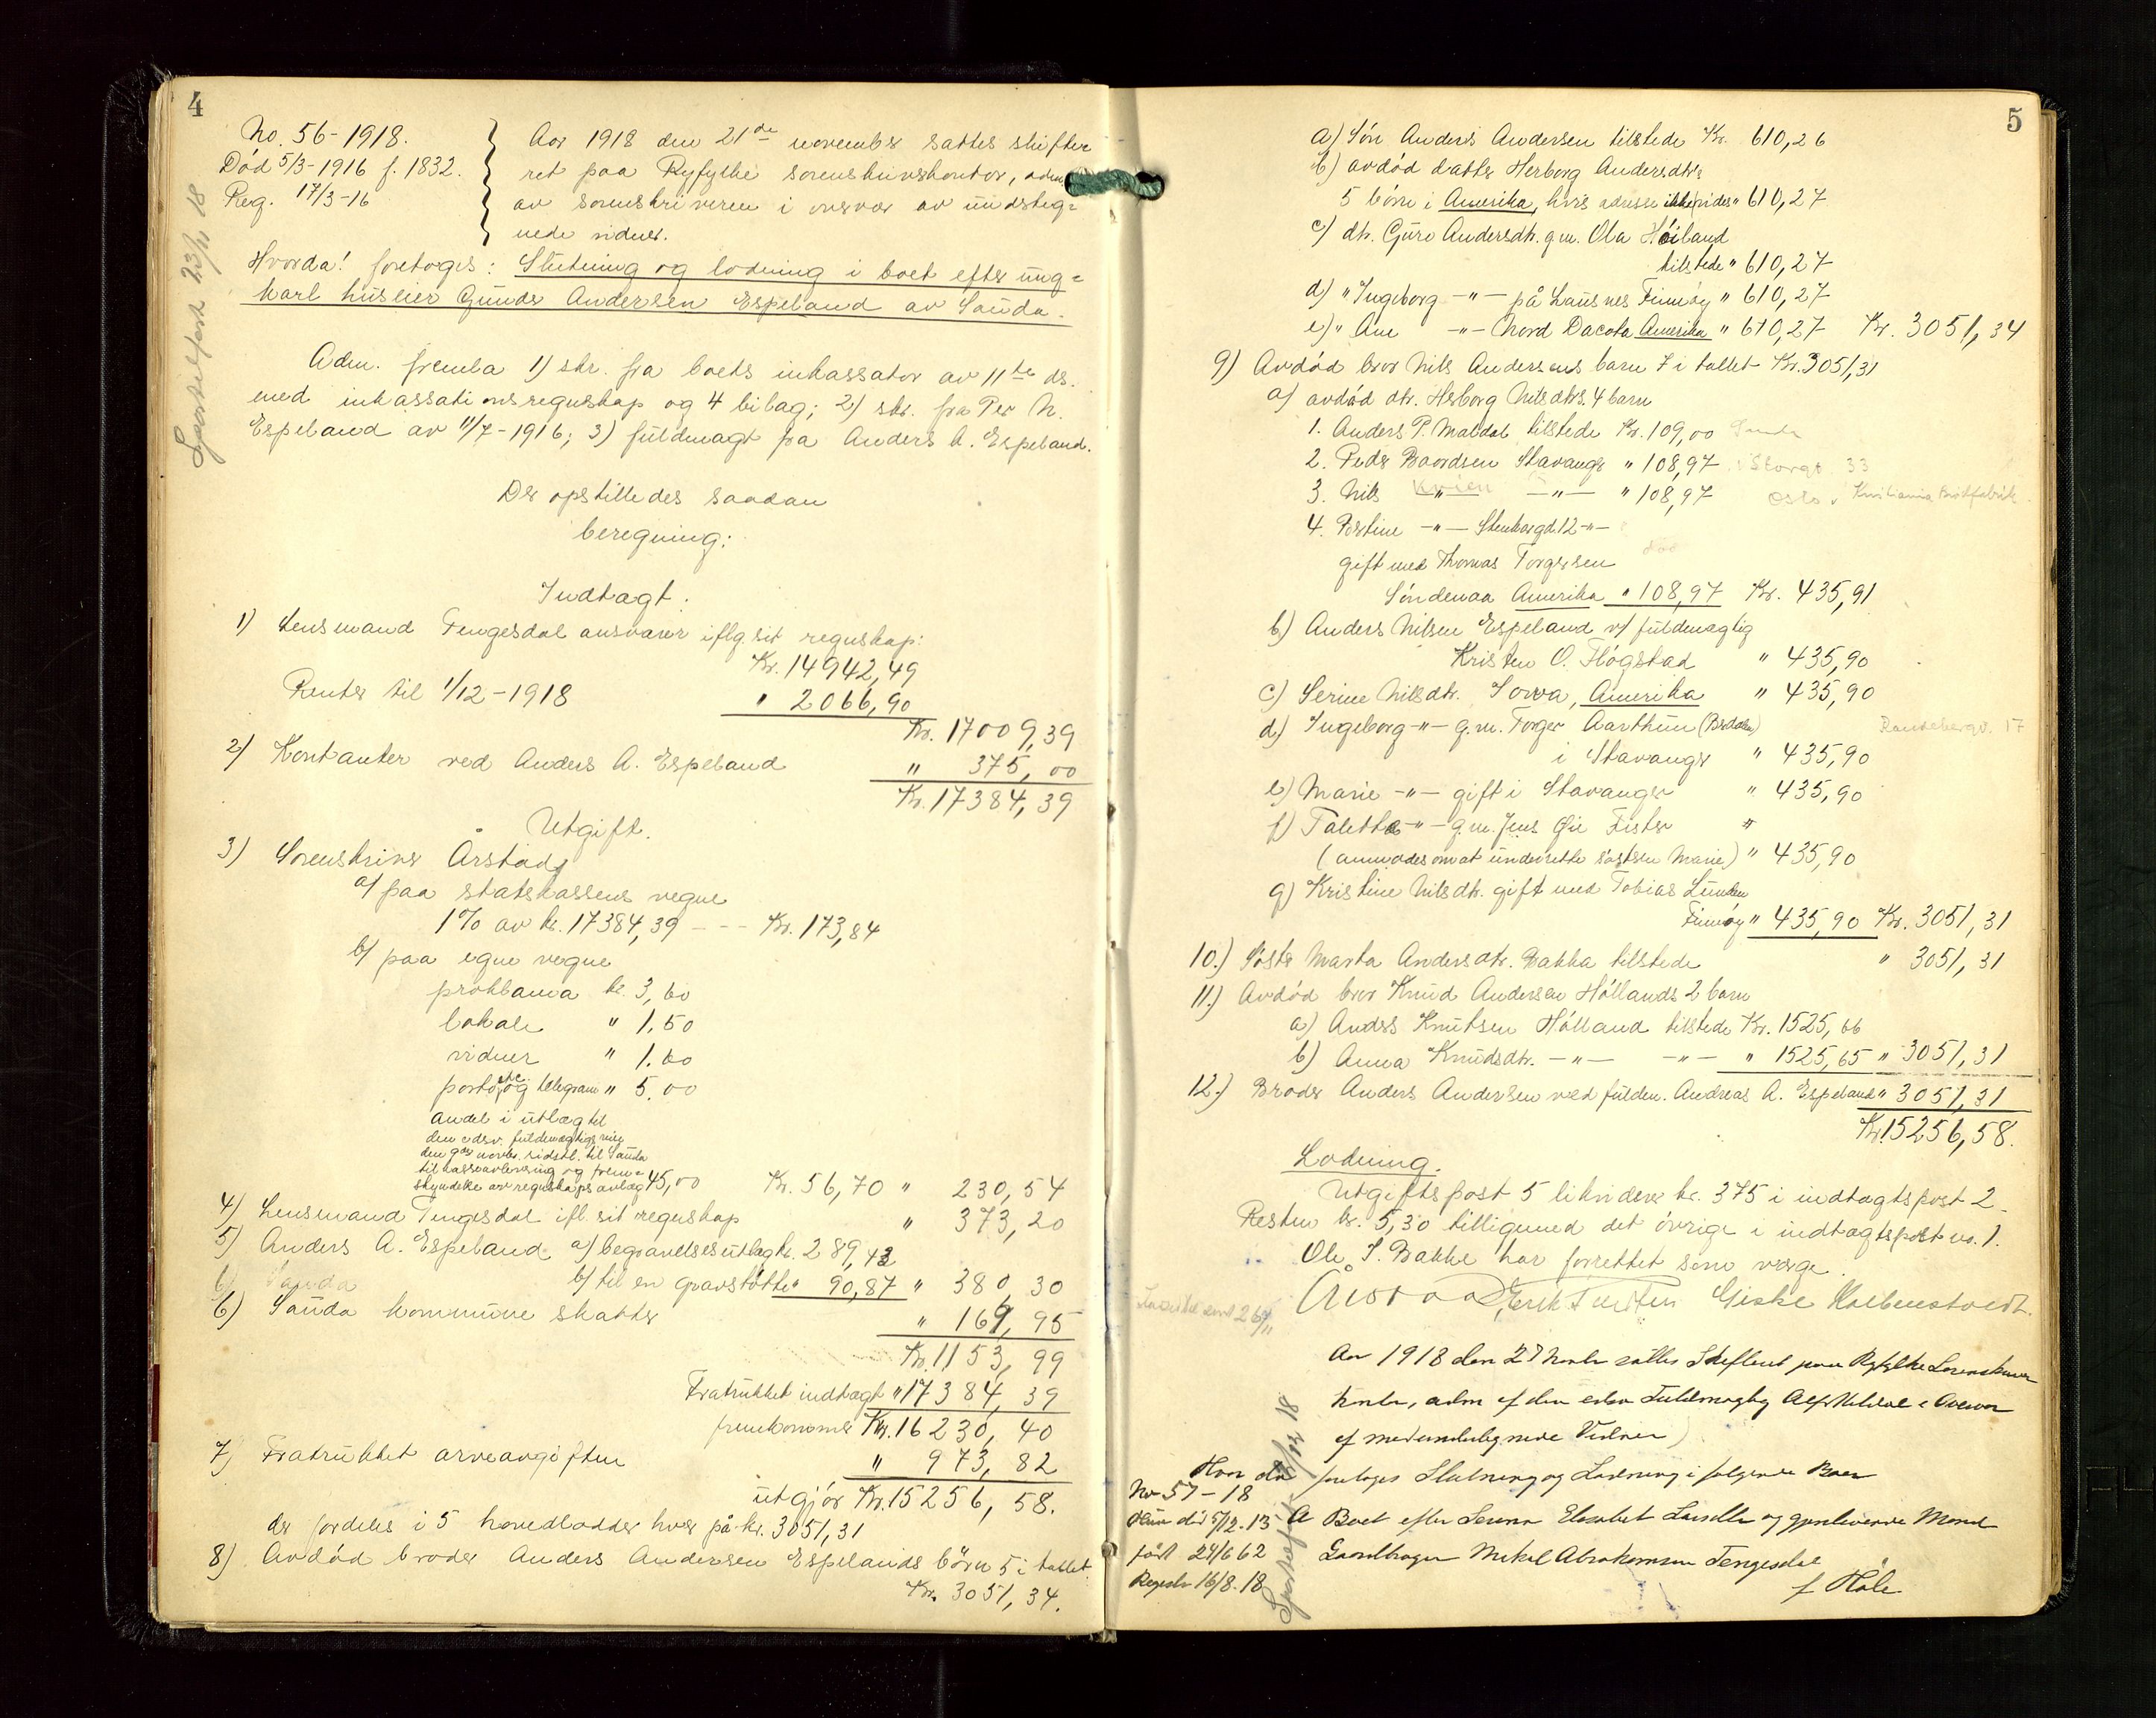 4
No. 56-1918.
Död 5/3-1916 f. 1832.
Reg. 17/3-16
Aar 1918 den 21de november sattes skifter
ret paa Ryfylke sorenskriverkontor, adm.
av sorenskriveren i overvær av undsteg=
nede vidner.
Sportelført 23/11 18
Hvorda! foretoges: Slutning og lodning i boet efter ung=
karl huseier Gunder Andersen Espeland av Sauda.
Adm. fremla 1) skr. fra boets inkassator av 11te ds.
med inkassationsregnskap og 4 bilag; 2) skr. fra Per N.
Espeland av 11/7-1916; 3) fuldmagt fra Anders A. Espeland.
Der opstilledes saadan
beregning:
Indtægt:
1) Lensmand Tengesdal ansvarer iflg. sit regnskap:
Kr. 14942,49
Renter til 1/12-1918 " 2066,90
Kr. 17009,39
2) Kontanter ved Anders A. Espeland " 375,00
Kr. 17384,39
Utgift.
3) Sorenskriver Årstad
a) paa statskassens vegne
1% av kr. 17384,39 --- Kr. 173,84
b) paa egne vegne
proklama kr. 3,60
lokale " 1.50
vidner " 1.60
porto, rkv. og telegram " 5.00
andel i utlæg til
den edsv. fuldmægtigs reise
den 9de novbr. sidstl. til Sauda
til kasseavlevering og frem=
skyndelse av regnskapsavlæg 45,00 Kr. 56,70 " 230,54
4) Lensmand Tengesdal ifl. sit regnskap " 373,20
5) Anders A. Espeland a) begravelsesutlæg kr. 289,43
6) Sauda b) til en gravstötte " 90,87 " 380,30
6) Sauda kommune skatter " 169,95
Kr. 1153,99
Fratrukket indtægt " 17384,39
fremkommer Kr. 16230,40
7) Fratrukket arveavgiften " 973,82
utgjör Kr. 15256,58.
der fordeles i 5 hovedlodder hver på kr. 3051,31
8) Avdöd broder Anders Andersen Espelands börn 5 i tallet
Kr. 3051,34.
5
a) Sön Anders Andersen tilstede Kr. 610,26
b) avdöd datter Herborg Andersdtrs
5 börn i Amerika, hvis adresse ikke vides " 610,27
c) dtr. Guro Andersdtr. g.m. Ola Höiland
tilstede " 610,27
d) " Ingeborg -"- på Lausnes Finnöy " 610,27
e) " Ane -"- Nord Dacota Amerika " 610,27 Kr. 3051,34
9) Avdöd bror Nils Andersens barn 7 i tallet Kr. 3051,31
a) avdöd dtr. Herborg Nilsdtrs. 4 barn
1. Anders P. Maldal tilstede Kr. 109,00 Sauda
2. Peder Baardsen Stavanger " 108,97 Storgt. 33
3. Nils -"- Kvien -"- " 108,97 Oslo v Kristiania Brödfabrik
4. Bertine -"- Stenbergd. 12 -"-
gift med Thomas Torgersen död
Söndenaa Amerika " 108,97 Kr. 435,91
b) Anders Nilsen Espeland v/ fuldmægtig
Kristen O. Flögstad " 435,90
c) Serine Nilsdtr. Iowa, Amerika " 435,90
d) Ingeborg -"- g.m. Torger Aarthun (Bredalen) Randebergv. 17
i Stavanger " 435,90
e) Marie -"- gift i Stavanger " 435,90
f) Taletta -"- g.m. Jens Öie Fister "
(anmodes om at underrette söstren Marie) " 435,90
g) Kristine Nilsdtr. gift med Tobias Lunden
Finnöy " 435,90 Kr. 3051,31
10.) Söster Marta Andersdtr. Bakka tilstede " 3051,31
11.) Avdöd bror Knud Andersen Höllands 2 barn
a) Anders Knutsen Hölland tilstede Kr. 1525,66
b) Anna Knudsdtr. -"- -"- " 1525,65 " 3051,31
12.) Broder Anders Andersen ved fuldm. Andreas A. Espeland " 3051,31
Kr. 15256,58.
Lodning.
Utgiftspost 5 likviderer kr. 375 i indtægtspost 2.
Resten kr. 5,30 tilligemed det övrige i indtægtspost no. 1.
Ole S. Bakke har forrettet som værge.
Giske Halbenstvedt.
Aar 1918 den 27 Novbr sattes Skifteret paa Ryfylke Sorenskriver
kontor, adm af den edsv Fuldmægtig Alf i Overvær
af medundertegnede Vidner
Hvor da foretoges Slutning og Lodning i følgende Boer
No 57-18
Hun död 5/12.13
født 24/6 62
Registr 16/8.18
Sportelført 3/12 18
A Boet efter Serena Elisabet Larsdtr og gjenlevende Mand
Gaardbruger Mikal Abrahamsen Tengesdal
f Høle